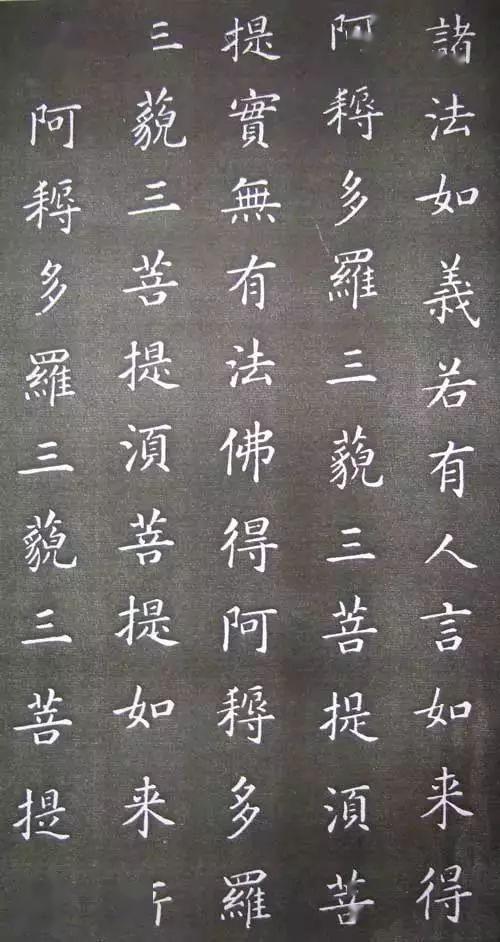 諸法如義若有人言如来得
阿耨多羅三藐三菩提湏菩
提實無有法佛得阿耨多羅
三藐三菩提湏菩提如来
阿耨多羅三藐三菩提